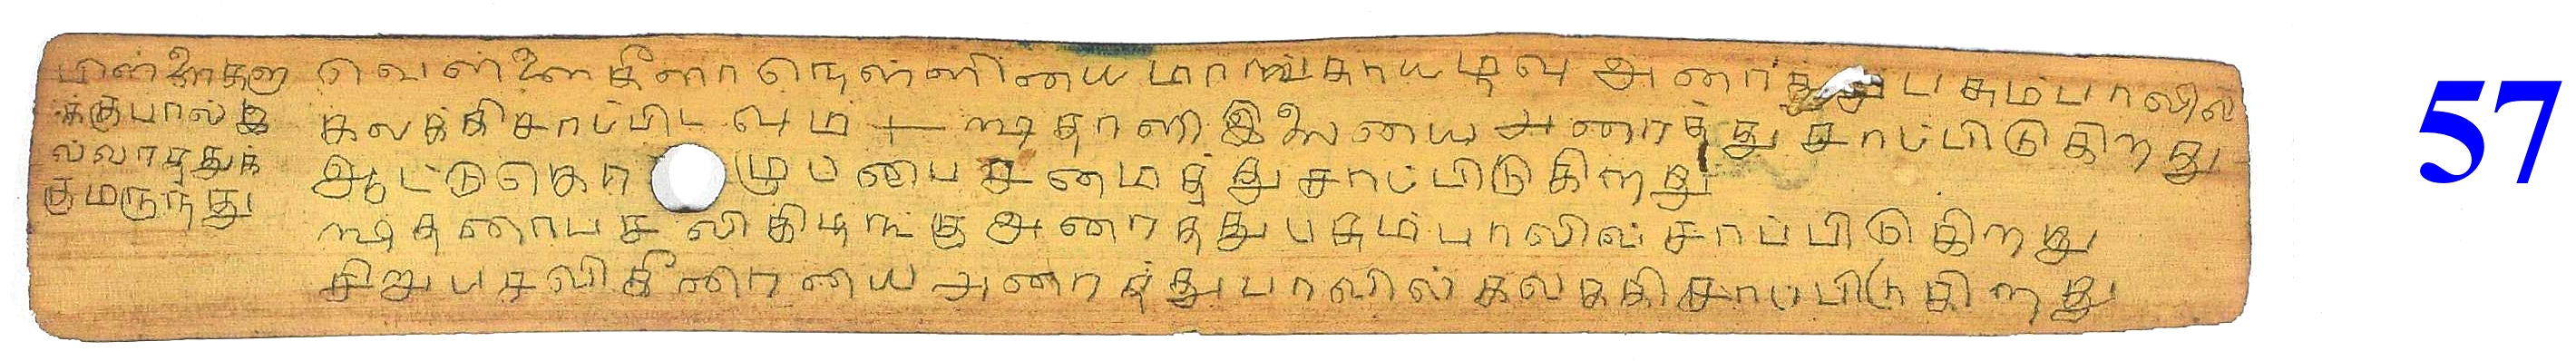 பிள்ளைகளு
க்குபால்இ
ல்லாததுக்
குமருந்து
வெள்ளைகீளாநெள்ளியையமாஙகாயமுவ அரைத்து பசும்பாலில்
கலக்கிசாப்பிடவும் + ஷதாளிஇலையைஅரைத்து சாப்பிடுகிறது
ஆட்டுகொ முப்பைசமைத்துசாப்பிடுகிறது
ஷதரைபசலிகிழங்குஅரைத்துபசும்பாலில்சாப்பிடுகிறது
சிறுபசலிகீரையைஅரைத்துபாலில்கலக்கிசாப்பிடுகிறது
57